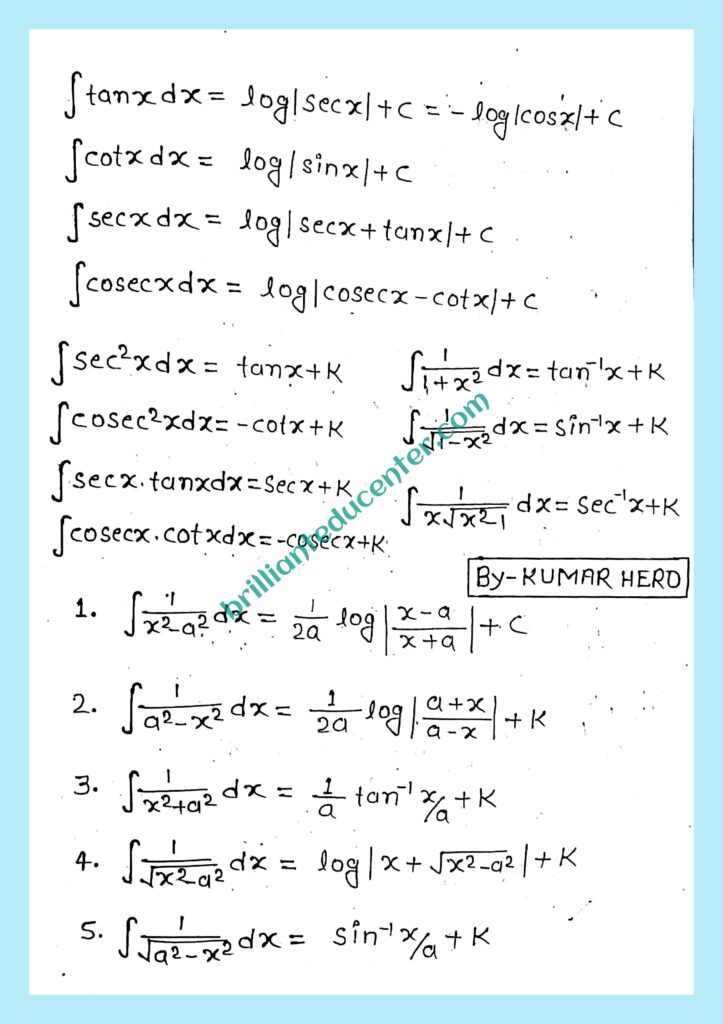 ∫tanx dx = log|secx|+c = -log|cosx|+c
∫cotx dx = log|sinx|+c
∫secx dx = log|secx+tanx|+c
∫cosecx dx = log|cosecx-cotx|+c
∫sec²x dx = tanx+K
∫cosec²x dx = -cotx+K
∫secx.tanx dx = secx+K
∫cosecx.cotx dx = -cosecx+K
∫1/(1+x²) dx = tan⁻¹x+K
∫1/√(1-x²) dx = sin⁻¹x+K
∫1/(x√(x² 1)) dx = sec⁻¹x+K
brillianteducenter.com
By-KUMAR HERO
1. ∫1/(x²-a²) dx = 1/2a log|(x-a)/(x+a)|+c
2. ∫1/(a²-x²) dx = 1/2a log|(a+x)/(a-x)|+K
3. ∫1/(x²+a²) dx = 1/a tan⁻¹ x/a +K
4. ∫1/√(x²-a²) dx = log|x+√(x²-a²)|+K
5. ∫1/√(a²-x²) dx = sin⁻¹ x/a +K